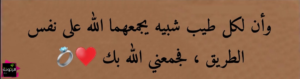 وأن لكل طيب شبيه يجمعهما الله على نفس
الطريق ، فجمعني الله بك ❤️💍